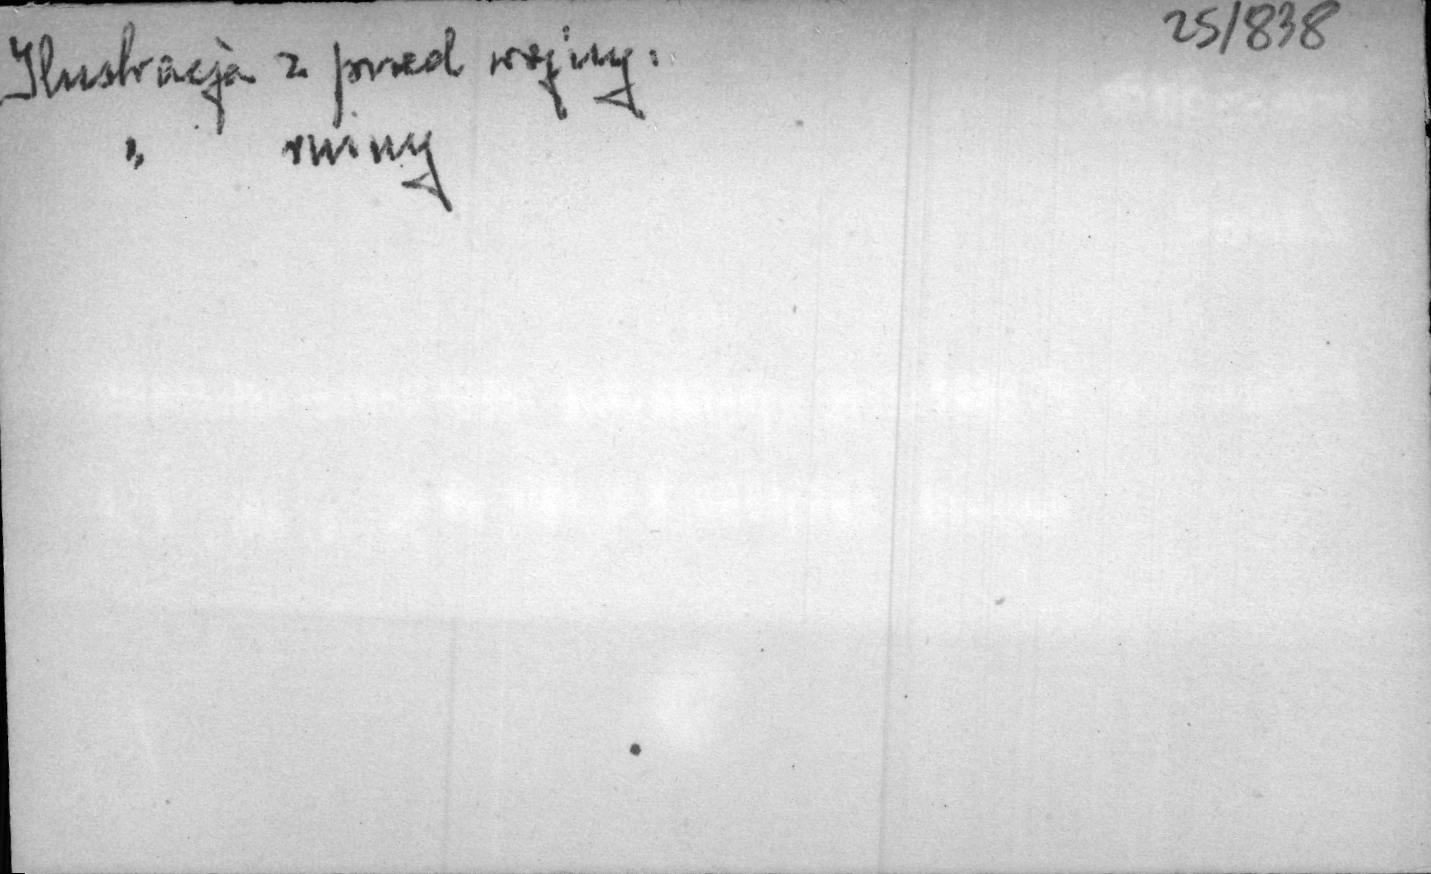 25/838
Ilustracja z przed wojny.
" ruiny